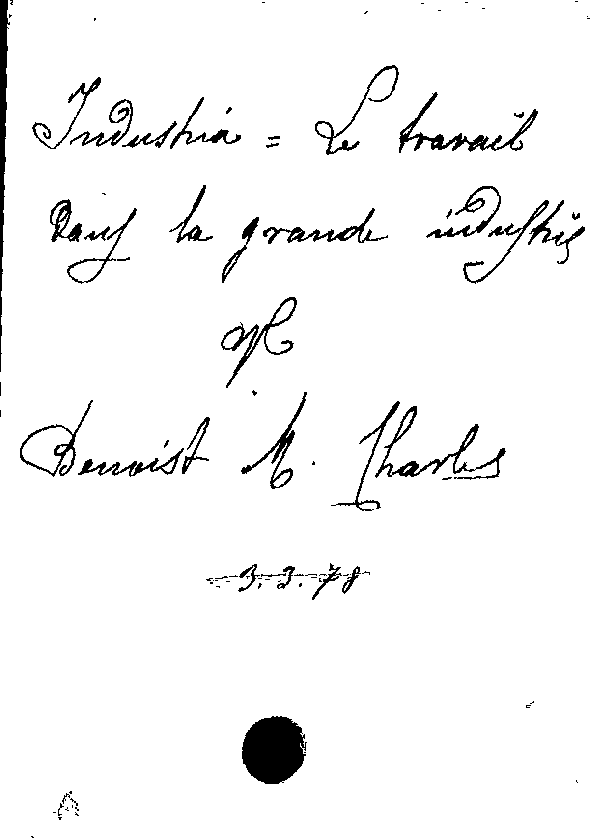 Industria = Le travail
Dans la grande industrie
Benoist M. Charles
3.3.78